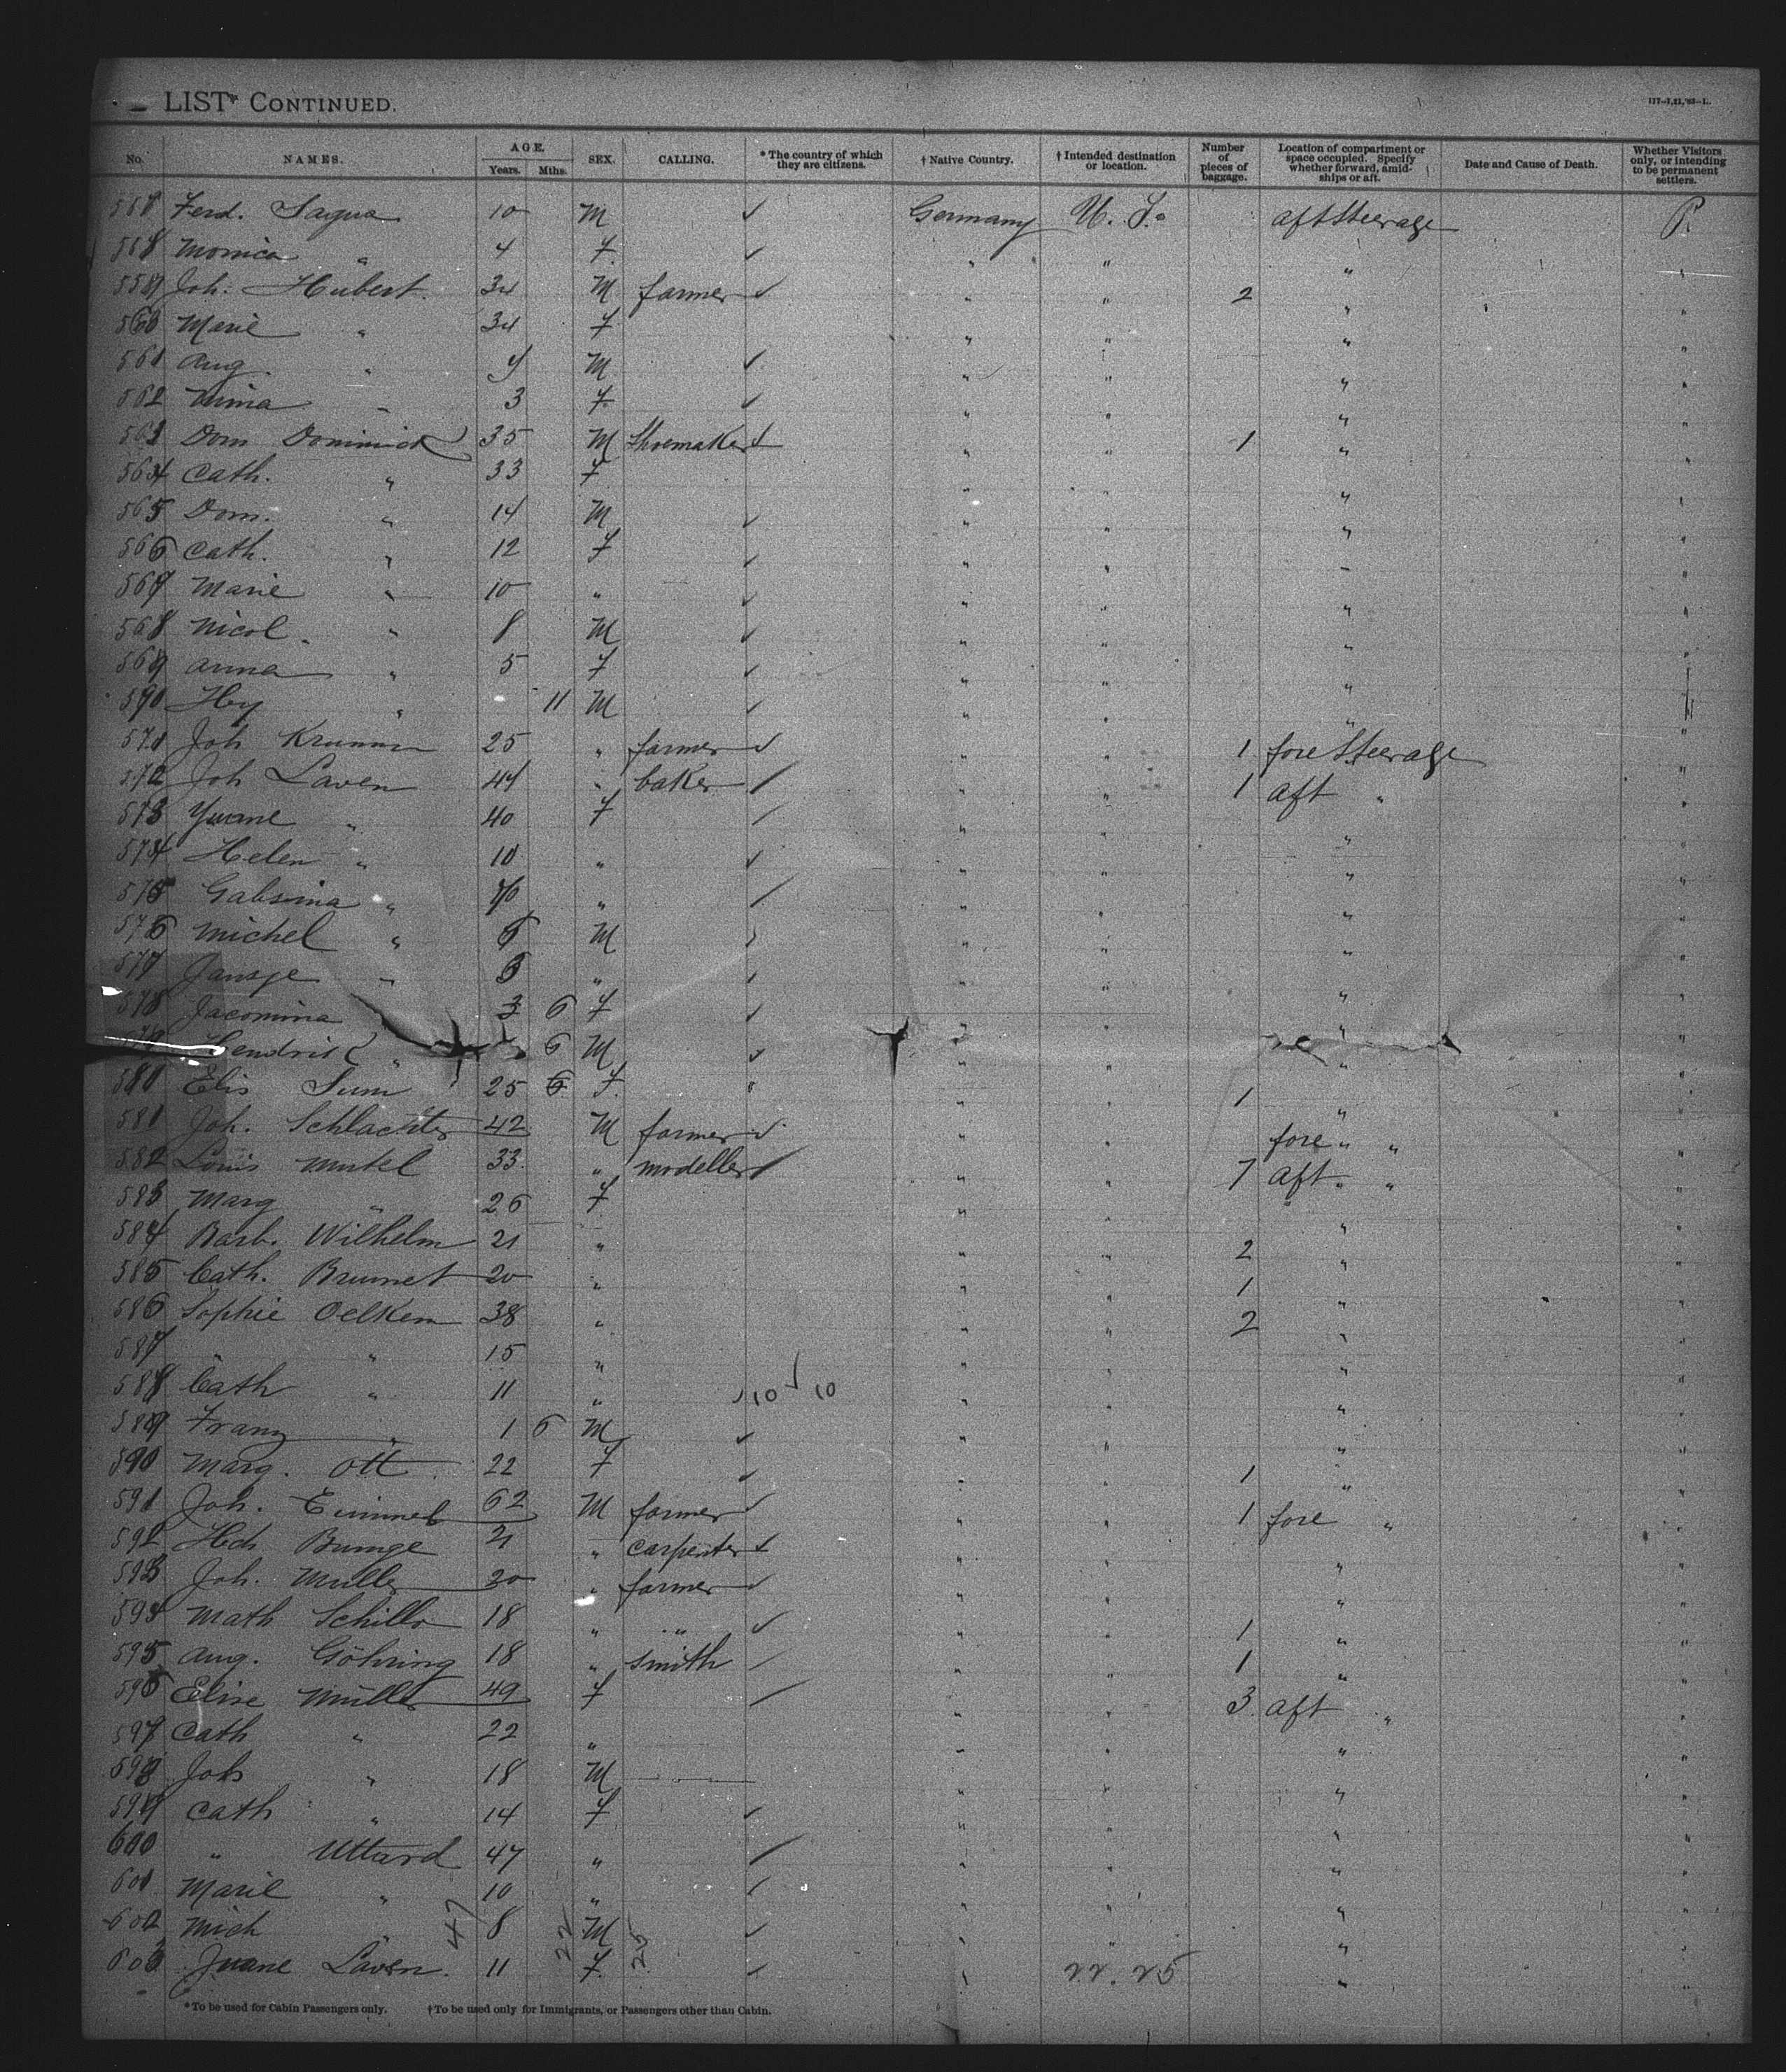 LIST CONTINUED.
No. NAMES. AGE. Years. Mths. SEX. CALLING. * The country of which they are citizens. † Native Country. † Intended destination or location. Number of pieces of baggage. Location of compartment or space occupied. Specify whether forward, amidships or aft. Date and Cause of Death. Whether Visitors only, or intending to be permanent settlers.
Ferd. Sagua 10 M ✓ Germany U. S. aft Steerage P.
Monica " 4 F ✓ " " " "
Joh. Hubert 34 M farmer ✓ " " 2 " "
560 Marie " 34 F " " " "
561 Aug. " M ✓ " " " "
562 Nina " 3 F ✓ " " " "
563 Dom Dominick 35 M Shoemaker ✓ " " 1 " "
564 Cath. " 33 F " " " "
565 Dom. " 14 M ✓ " " " "
566 Cath. " 12 F ✓ " " " "
567 Marie " 10 " ✓ " " " "
568 Nicol. " 8 M ✓ " " " "
569 Anna " 5 F ✓ " " " "
Hy " 11 M ✓ " " " "
571 Joh Krumm 25 " farmer ✓ " " 1 fore Steerage "
572 Joh Laven 44 " baker / " " 1 aft " "
573 " 40 F / " " " "
574 Helen " 10 " ✓ " " " "
575 " " / " " " "
576 Michel " 6 M " " " "
577 Jansje " " " " " "
578 Jacomina 3 6 F ✓ " " " "
Hendrik " 6 M ✓ " " " "
580 Elis 25 6 F. " " " 1 " "
581 Joh. Schlachter 42 M farmer ✓ " " fore " " "
582 Louis Mutel 33 " modeller / " " 7 aft " " "
583 Marg " 26 F " " " "
584 Barb. Wilhelm 21 " " " 2 " "
585 Cath. Brumet 20 " " " 1 " "
586 Sophie Oelken 38 " " " 2 " "
587 " " 15 " " " " "
588 Cath " 11 " 10 ✓ 10 " " " "
589 Franz " 1 6 M ✓ " " " "
590 Marg. Ott 22 F ✓ " " 1 " "
591 Joh. Eimmel 62 M farmer ✓ " " 1 fore " "
592 Hch Bumge 21 " carpenter ✓ " " " "
593 Joh. Muller 20 " farmer ✓ " " " "
594 Math Schillo 18 " " ✓ " " 1 " "
595 Aug. Göhring 18 " smith / " " 1 " "
596 Elise Müller 49 F / " " 3 aft " "
597 Cath " 22 " " " " "
598 Joh " 18 M " " " "
599 Cath " 14 F ✓ " " " "
600 " Uttard 47 " / " " " "
601 Marie " 10 " / " " " "
602 Mich " 8 M ✓ " " " "
603 Juane Laven. 11 F. ✓ " " "
47 22 25 22. 25
* To be used for Cabin Passengers only. † To be used only for Immigrants, or Passengers other than Cabin.